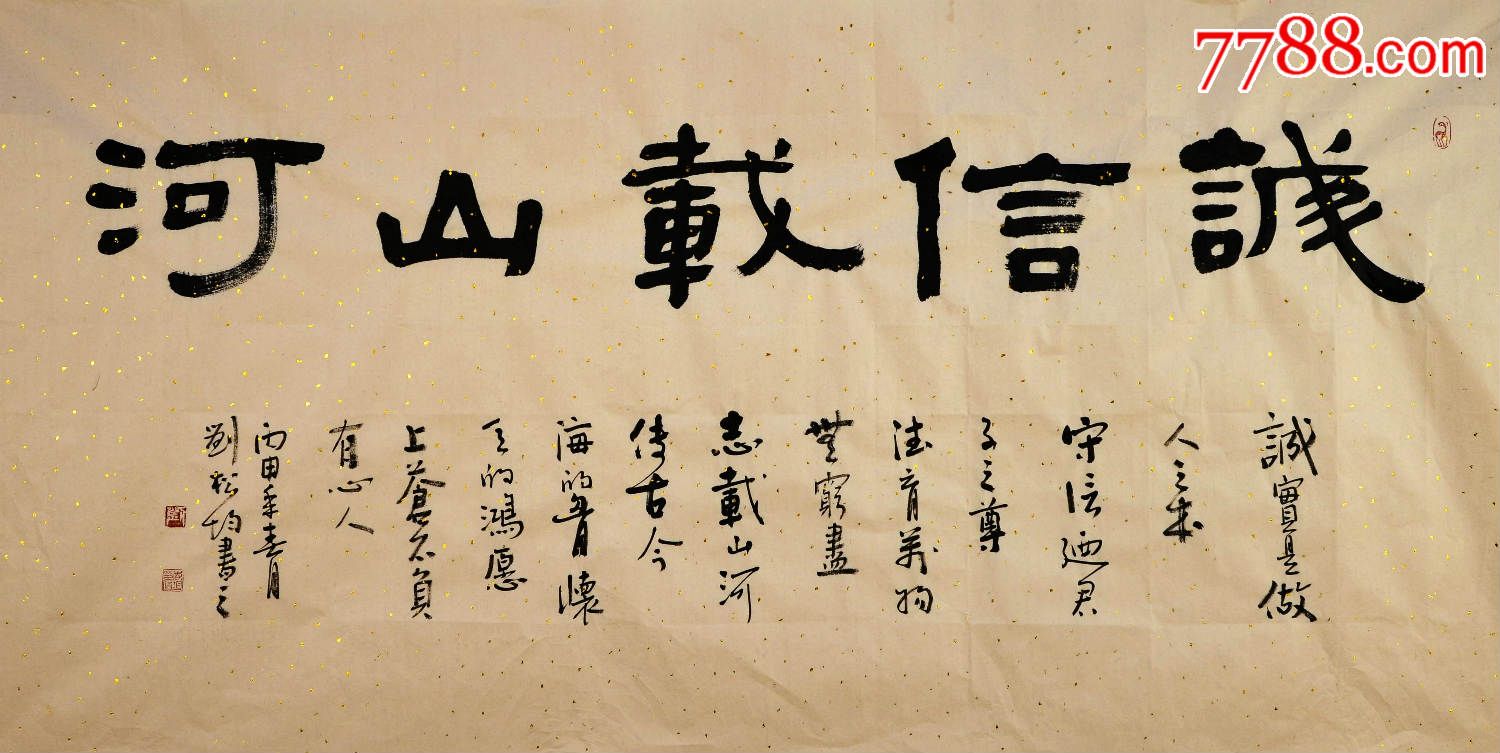 7788.com
誠信載山河
誠實是做
人之本
守信廼君
子之尊
德育萬物
無窮盡
志載山河
傳古今
海的胷懷
天的鴻愿
上蒼不負
有心人
丙申年春月
劉松均書之